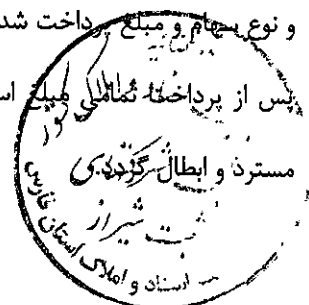 و نوع سهام و مبلغ پرداخت شد
پس از پرداخت تمامی مبلغ اس
مسترد و ابطال گردد.
ثبت شیراز
اسناد و املاک استان فارس